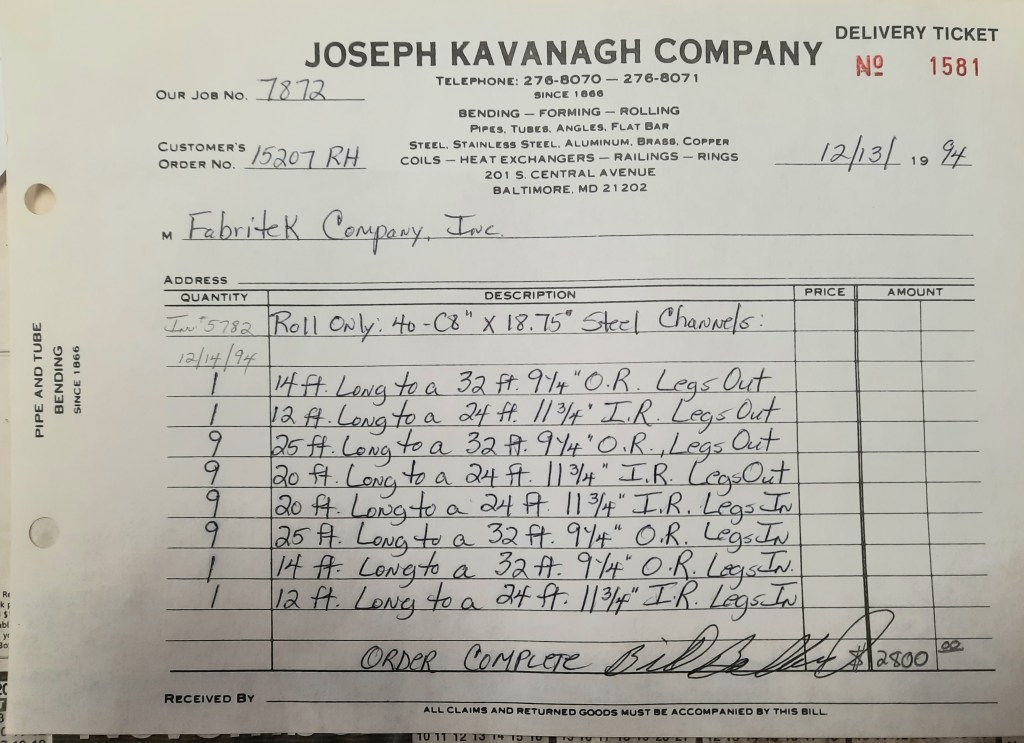 DELIVERY TICKET
JOSEPH KAVANAGH COMPANY
Nº 1581
TELEPHONE: 276-8070 — 276-8071
SINCE 1866
OUR JOB NO. 7872
BENDING — FORMING — ROLLING
PIPES, TUBES, ANGLES, FLAT BAR
STEEL, STAINLESS STEEL, ALUMINUM, BRASS, COPPER
CUSTOMER'S
ORDER NO. 15207 RH
COILS — HEAT EXCHANGERS — RAILINGS — RINGS
12/13/ 19 94
201 S. CENTRAL AVENUE
BALTIMORE, MD 21202
M Fabritek Company, Inc.
ADDRESS
QUANTITY DESCRIPTION PRICE AMOUNT
Inv # 5782 Roll Only: 40 - C8" X 18.75" Steel Channels:
12/14/94
1 14 ft. Long to a 32 ft. 9 1/4" O.R. Legs Out
1 12 ft. Long to a 24 ft. 11 3/4" I.R. Legs Out
9 25 ft. Long to a 32 ft. 9 1/4" O.R., Legs Out
9 20 ft. Long to a 24 ft. 11 3/4" I.R. Legs Out
9 20 ft. Long to a 24 ft. 11 3/4" I.R. Legs In
9 25 ft. Long to a 32 ft. 9 1/4" O.R. Legs In
1 14 ft. Long to a 32 ft. 9 1/4" O.R. Legs In.
1 12 ft. Long to a 24 ft. 11 3/4" I.R. Legs In
ORDER COMPLETE Bill $ 2800 00
RECEIVED BY
ALL CLAIMS AND RETURNED GOODS MUST BE ACCOMPANIED BY THIS BILL
PIPE AND TUBE
BENDING
SINCE 1866